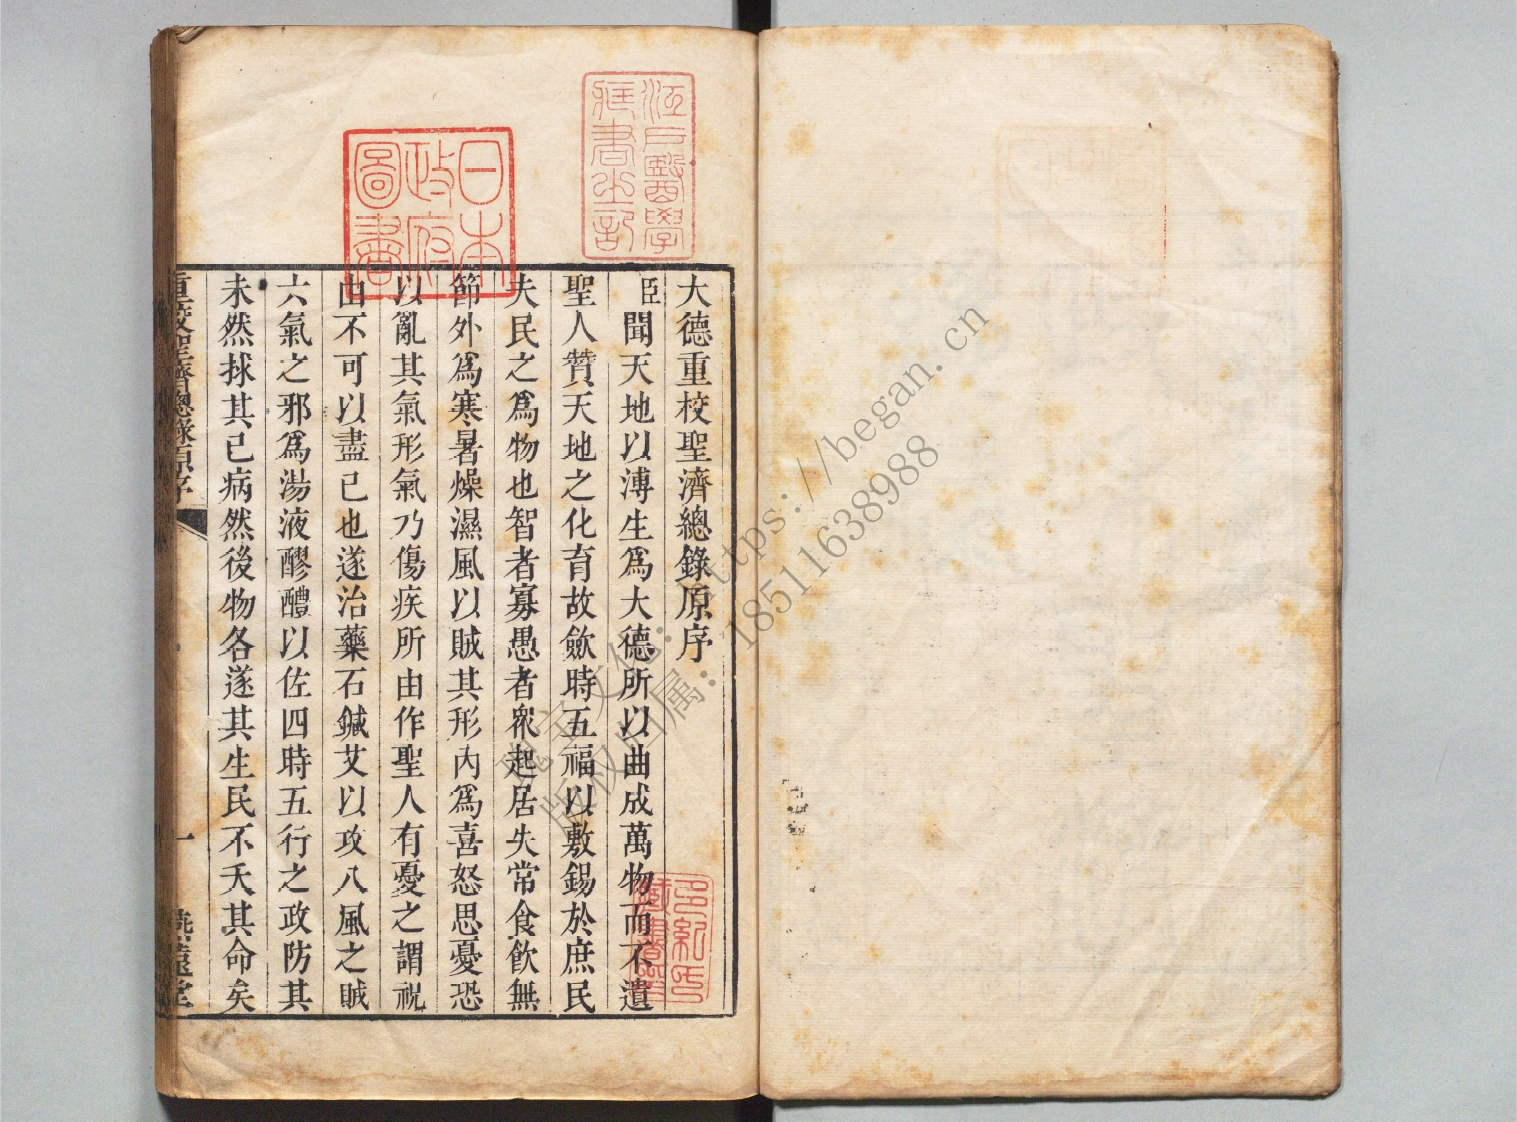 大德重校聖濟總錄原序
臣聞天地以溥生爲大德所以曲成萬物而不遺
聖人贊天地之化育故歛時五福以敷錫於庶民
夫民之爲物也智者寡愚者衆起居失常食飮無
節外爲寒暑燥濕風以賊其形內爲喜怒思憂恐
以亂其氣形氣乃傷疾所由作聖人有憂之謂祝
由不可以盡已也遂治藥石鍼艾以攻八風之賊
六氣之邪爲湯液醪醴以佐四時五行之政防其
未然捄其已病然後物各遂其生民不夭其命矣
重校聖濟總錄原序
一
燕遠堂
江戶醫學
藏書之記
日本
政府
圖書
https://began.cn
版权归属：18511638988